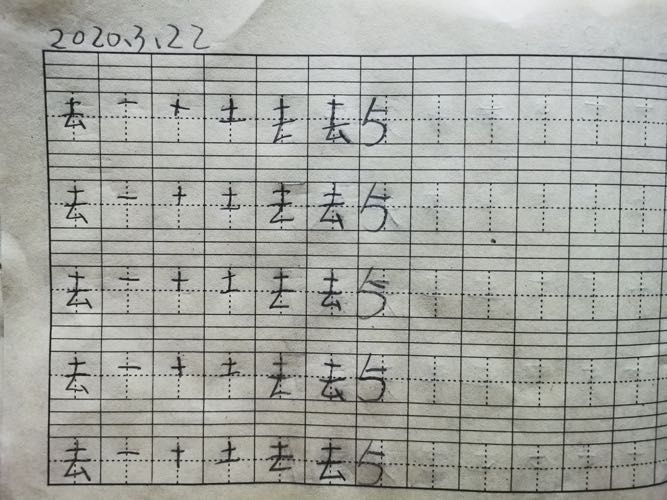 2020.3.22
去 一 十 土 去 去 5
去 一 十 土 去 去 5
去 一 十 土 去 去 5
去 一 十 土 去 去 5
去 一 十 土 去 去 5